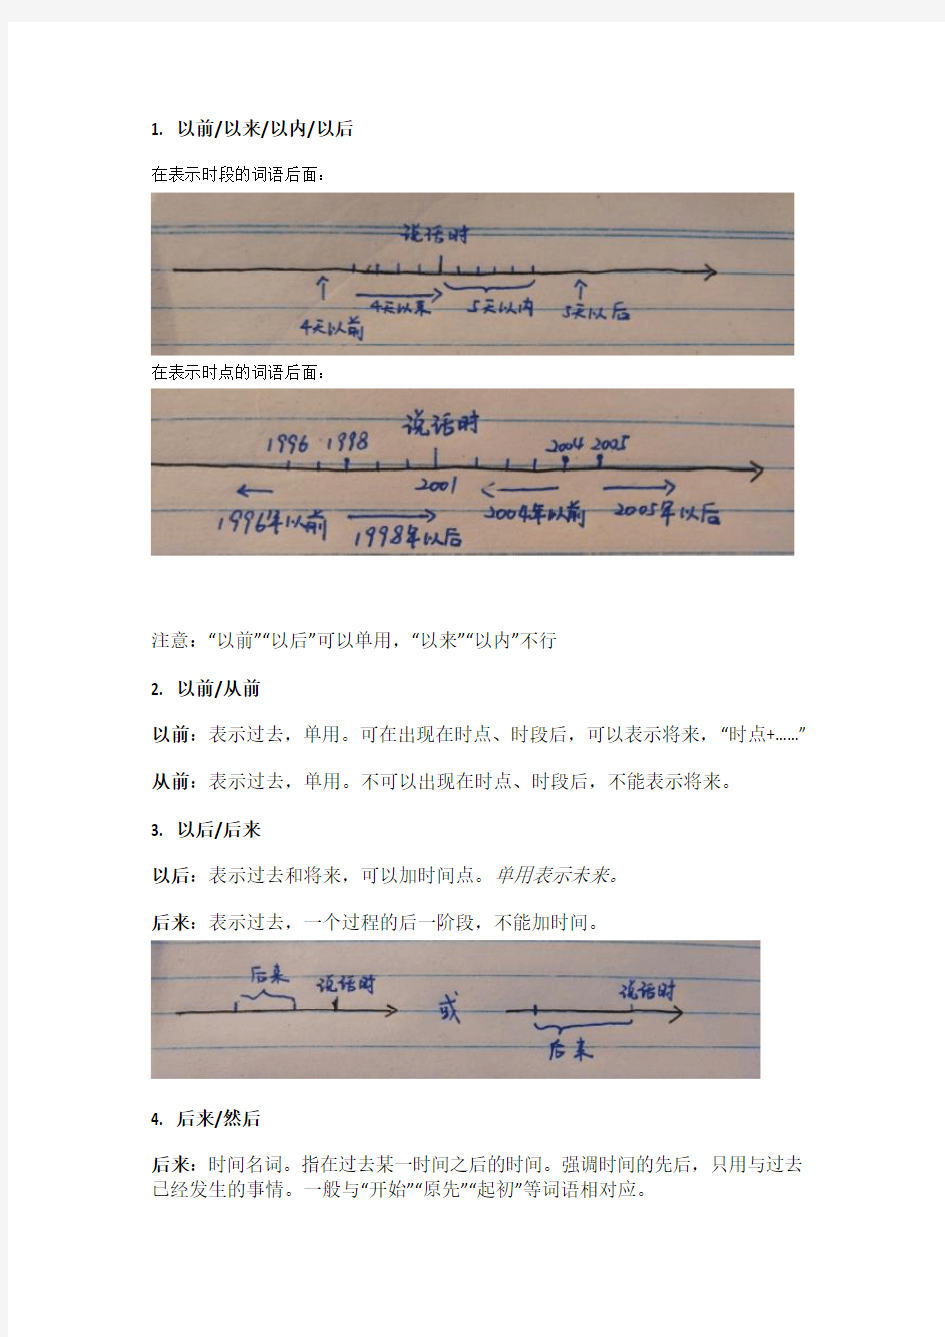 1. 以前/以来/以内/以后
在表示时段的词语后面：
说话时
4天以来 5天以内 5天以后
4天以前
在表示时点的词语后面：
说话时
1996 1998 2004 2005
2001
1996年以前 1998年以后 2004年以前 2005年以后
注意：“以前”“以后”可以单用，“以来”“以内”不行
2. 以前/从前
以前：表示过去，单用。可在出现在时点、时段后，可以表示将来，“时点+……”
从前：表示过去，单用。不可以出现在时点、时段后，不能表示将来。
3. 以后/后来
以后：表示过去和将来，可以加时间点。单用表示未来。
后来：表示过去，一个过程的后一阶段，不能加时间。
后来 说话时 或 说话时
后来
4. 后来/然后
后来：时间名词。指在过去某一时间之后的时间。强调时间的先后，只用与过去
已经发生的事情。一般与“开始”“原先”“起初”等词语相对应。